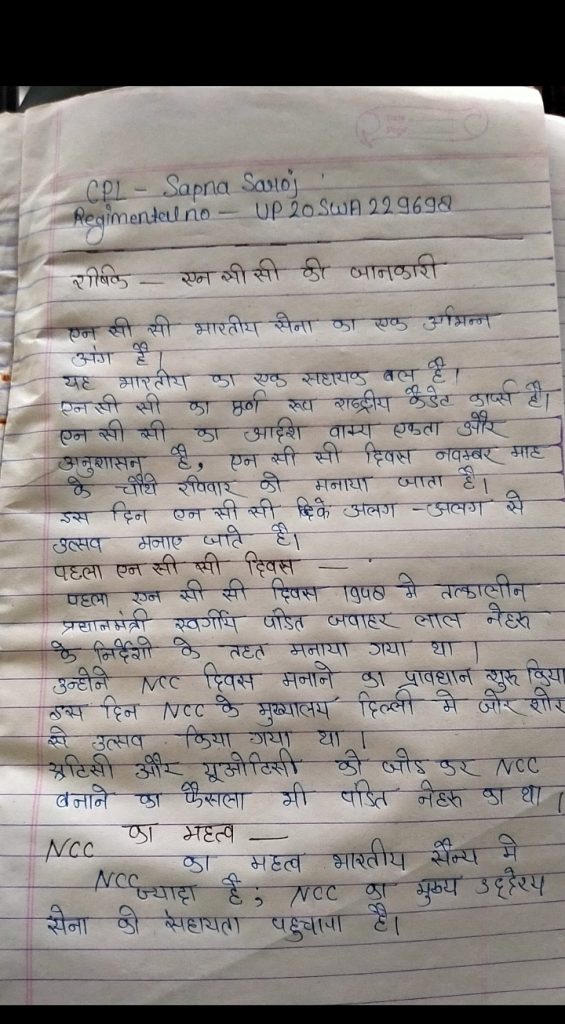 CPL - Sapna Saroj
Regimental no - UP20SWA229698
शीर्षक - एन सी सी की जानकारी
एन सी सी भारतीय सेना का एक अभिन्न
अंग है।
यह भारतीय का एक सहायक बल है।
एन सी सी का पूर्ण रूप राष्ट्रीय कैडेट कार्प्स है।
एन सी सी का आर्दश वाक्य एकता और
अनुशासन है, एन सी सी दिवस नवम्बर माह
के चौथे रविवार को मनाया जाता है।
इस दिन एन सी सी के अलग - अलग से
उत्सव मनाए जाते है।
पहला एन सी सी दिवस -
पहला एन सी सी दिवस 1948 मे तत्कालीन
प्रधानमंत्री स्वर्गीय पंडित जवाहर लाल नेहरू
के निर्देशो के तहत मनाया गया था।
उन्होने NCC दिवस मनाने का प्रावधान शुरू किया
इस दिन NCC के मुख्यालय दिल्ली मे जोर शोर
से उत्सव किया गया था।
और यूओटिसी को जोड कर NCC
बनाने का फैसला भी पंडित नेहरू का था।
NCC का महत्व -
NCC का महत्व भारतीय सैन्य मे
ज्यादा है; NCC का मुख्य उद्देश्य
सेना को सहायता पहुचाया है।